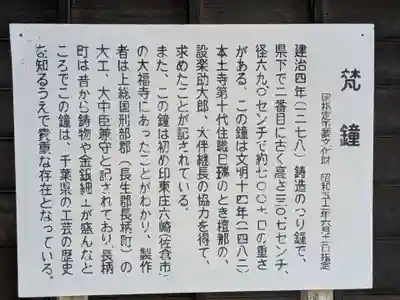 梵鐘
国指定重要文化財 昭和三十三年六月二日指定
建治四年(一二七八)鋳造のつり鐘で、
県下で二番目に古く高さ一三〇.七センチ、
径六九.〇センチで約七〇〇キロの重さ
がある。この鐘は文明十四年(一四八二)
本土寺第十代住職日瑞のとき檀那の、
設楽助太郎、大伴継長の協力を得て、
求めたことが記されている。
また、この鐘は初め印東庄六崎(佐倉市)
の大福寺にあったことがわかり、製作
者は上総国刑部郡(長生郡長柄町)の
大工、大中臣兼守と記されており、長柄
町は昔から鋳物や金銀細工が盛んなと
ころでこの鐘は、千葉県の工芸の歴史
を知るうえで貴重な存在となっている。